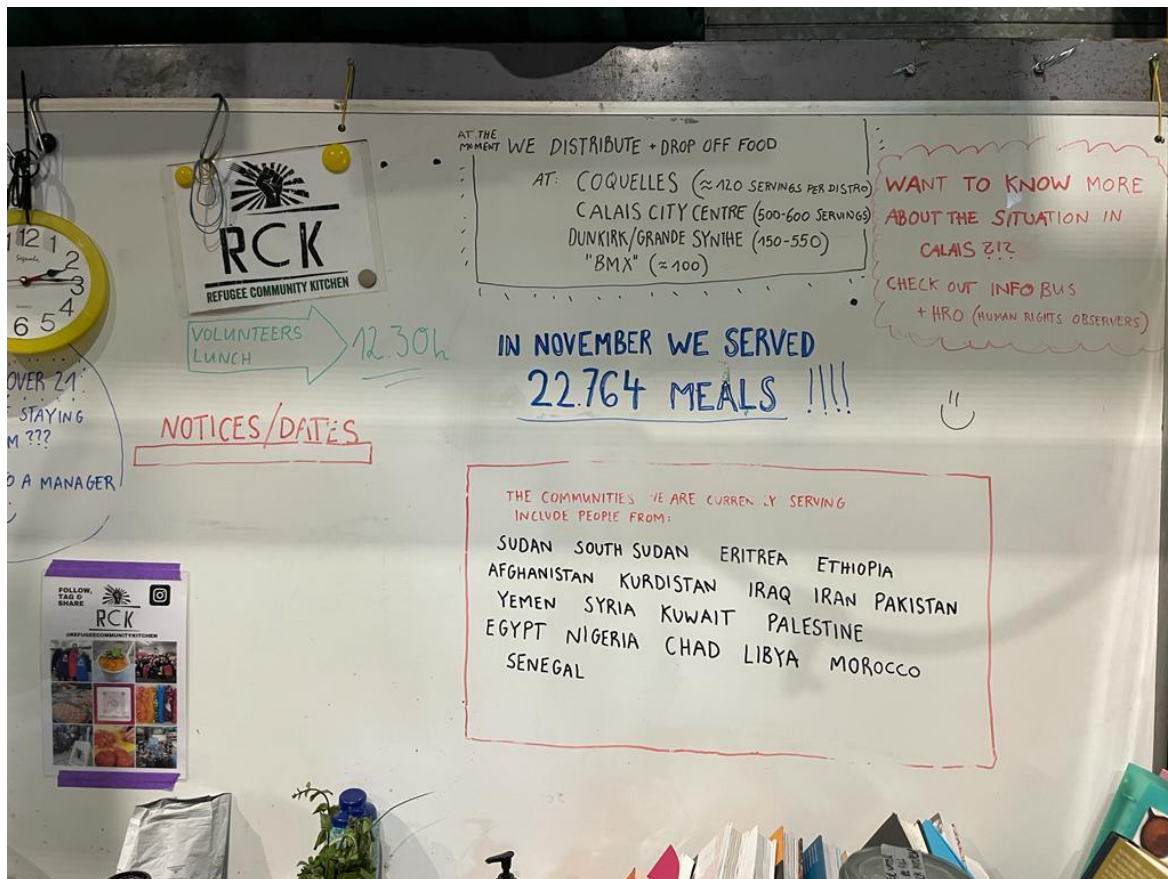 12
1
2
3
4
5
6
11
RCK
REFUGEE COMMUNITY KITCHEN
VOLUNTEERS LUNCH
12.30h
AT THE MOMENT WE DISTRIBUTE + DROP OFF FOOD
AT: COQUELLES (≈120 SERVINGS PER DISTRO)
CALAIS CITY CENTRE (500-600 SERVINGS)
DUNKIRK/GRANDE SYNTHE (150-550)
"BMX" (≈100)
WANT TO KNOW MORE
ABOUT THE SITUATION IN
CALAIS ?!?
CHECK OUT INFO BUS
+ HRO (HUMAN RIGHTS OBSERVERS)
IN NOVEMBER WE SERVED
22.764 MEALS !!!!
OVER 21:
STAYING
???
A MANAGER
NOTICES/DATES
THE COMMUNITIES WE ARE CURRENTLY SERVING
INCLUDE PEOPLE FROM:
SUDAN SOUTH SUDAN ERITREA ETHIOPIA
AFGHANISTAN KURDISTAN IRAQ IRAN PAKISTAN
YEMEN SYRIA KUWAIT PALESTINE
EGYPT NIGERIA CHAD LIBYA MOROCCO
SENEGAL
FOLLOW,
TAG &
SHARE
RCK
@REFUGEECOMMUNITYKITCHEN